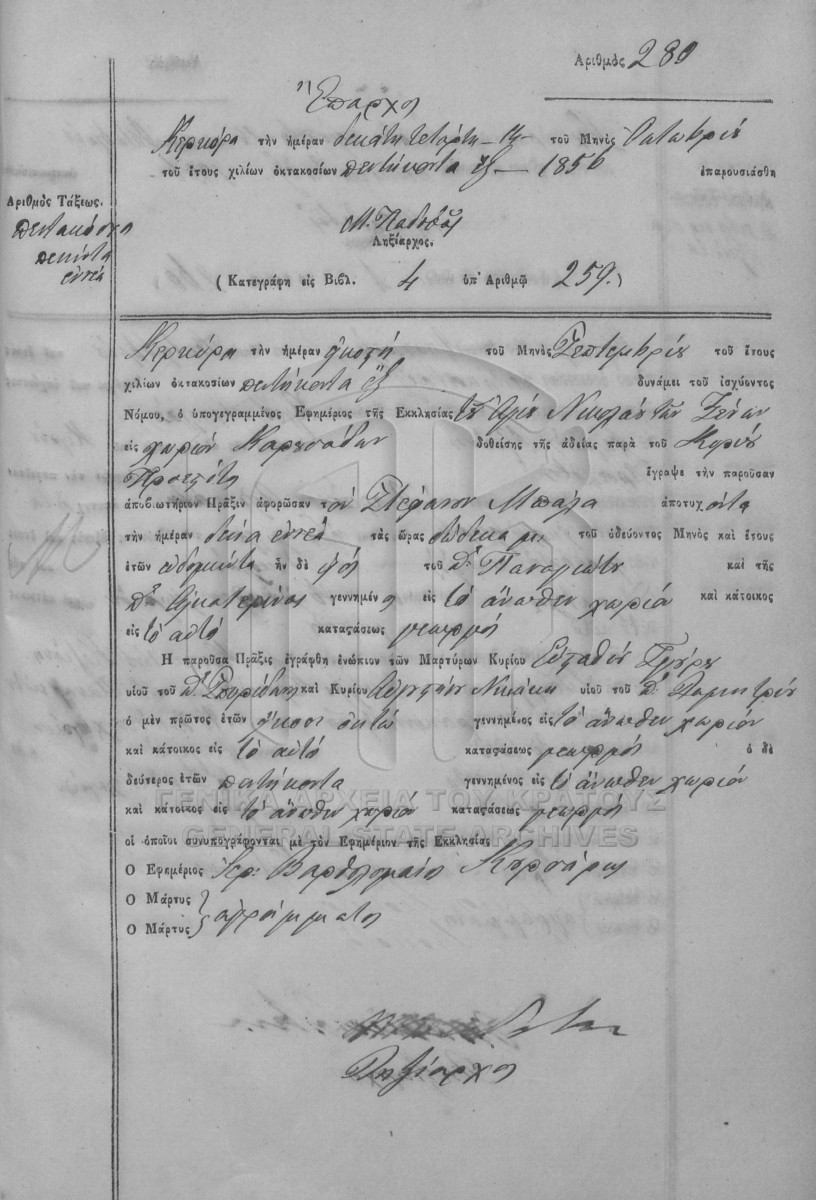 Ἀριθμὸς 280
Ἔπαρχος
Κερκύρα τὴν ἡμέραν δεκάτη τετάρτη — 14 — τοῦ Μηνὸς Ὀκτωβρίου
τοῦ ἔτους χιλίων ὀκτακοσίων πεντήκοντα ἕξ — 1856 ἐπαρουσιάσθη
Ἀριθμὸς Τάξεως.
ἐννέα
Ληξίαρχος.
( Κατεγράφη εἰς Βιβλ. 4 ὑπ' Ἀριθμῷ 259. )
Κερκύρα τὴν ἡμέραν τοῦ Μηνὸς Σεπτεμβρίου τοῦ ἔτους
χιλίων ὀκτακοσίων πεντήκοντα ἕξ δυνάμει τοῦ ἰσχύοντος
Νόμου, ὁ ὑπογεγραμμένος Ἐφημέριος τῆς Ἐκκλησίας τοῦ Ἁγίου Νικολάου τῶν Ξένων
εἰς χωρίον Καρουσάδων δοθείσης τῆς ἀδείας παρὰ τοῦ Κυρίου
ἔγραψε τὴν παροῦσαν
ἀποβιωτήριον Πρᾶξιν ἀφορῶσαν τὸν Στέφανον ἀποτυχόντα
τὴν ἡμέραν δέκα ἐννέα τὰς ὥρας δώδεκα μ. τοῦ ὁδεύοντος Μηνὸς καὶ ἔτους
ἐτῶν ἦν δὲ υἱὸς τοῦ Παναγιώτη καὶ τῆς
Αἰκατερίνας γεννημένος εἰς τὸ ἄνωθεν χωρίον καὶ κάτοικος
εἰς τὸ αὐτό καταστάσεως γεωργός
Ἡ παροῦσα Πρᾶξις ἐγράφθη ἐνώπιον τῶν Μαρτύρων Κυρίου
υἱοῦ τοῦ Σπυρίδων καὶ Κυρίου υἱοῦ τοῦ Δημητρίου
ὁ μὲν πρῶτος ἐτῶν εἴκοσι ὀκτώ γεννημένος εἰς τὸ ἄνωθεν χωρίον
καὶ κάτοικος εἰς τὸ αὐτό καταστάσεως γεωργός ὁ δὲ
δεύτερος ἐτῶν πεντήκοντα γεννημένος εἰς τὸ ἄνωθεν χωρίον
καὶ κάτοικος εἰς τὸ ἄνωθεν χωρίον καταστάσεως γεωργός
οἱ ὁποῖοι συνυπογράφονται μὲ τὸν Ἐφημέριον τῆς Ἐκκλησίας
Ὁ Ἐφημέριος Ἱερ: Βαρθολομαῖος
Ὁ Μάρτυς
Ὁ Μάρτυς ἀγράμματοι
Ληξίαρχος
ΓΕΝΙΚΑ ΑΡΧΕΙΑ ΤΟΥ ΚΡΑΤΟΥΣ
GENERAL STATE ARCHIVES